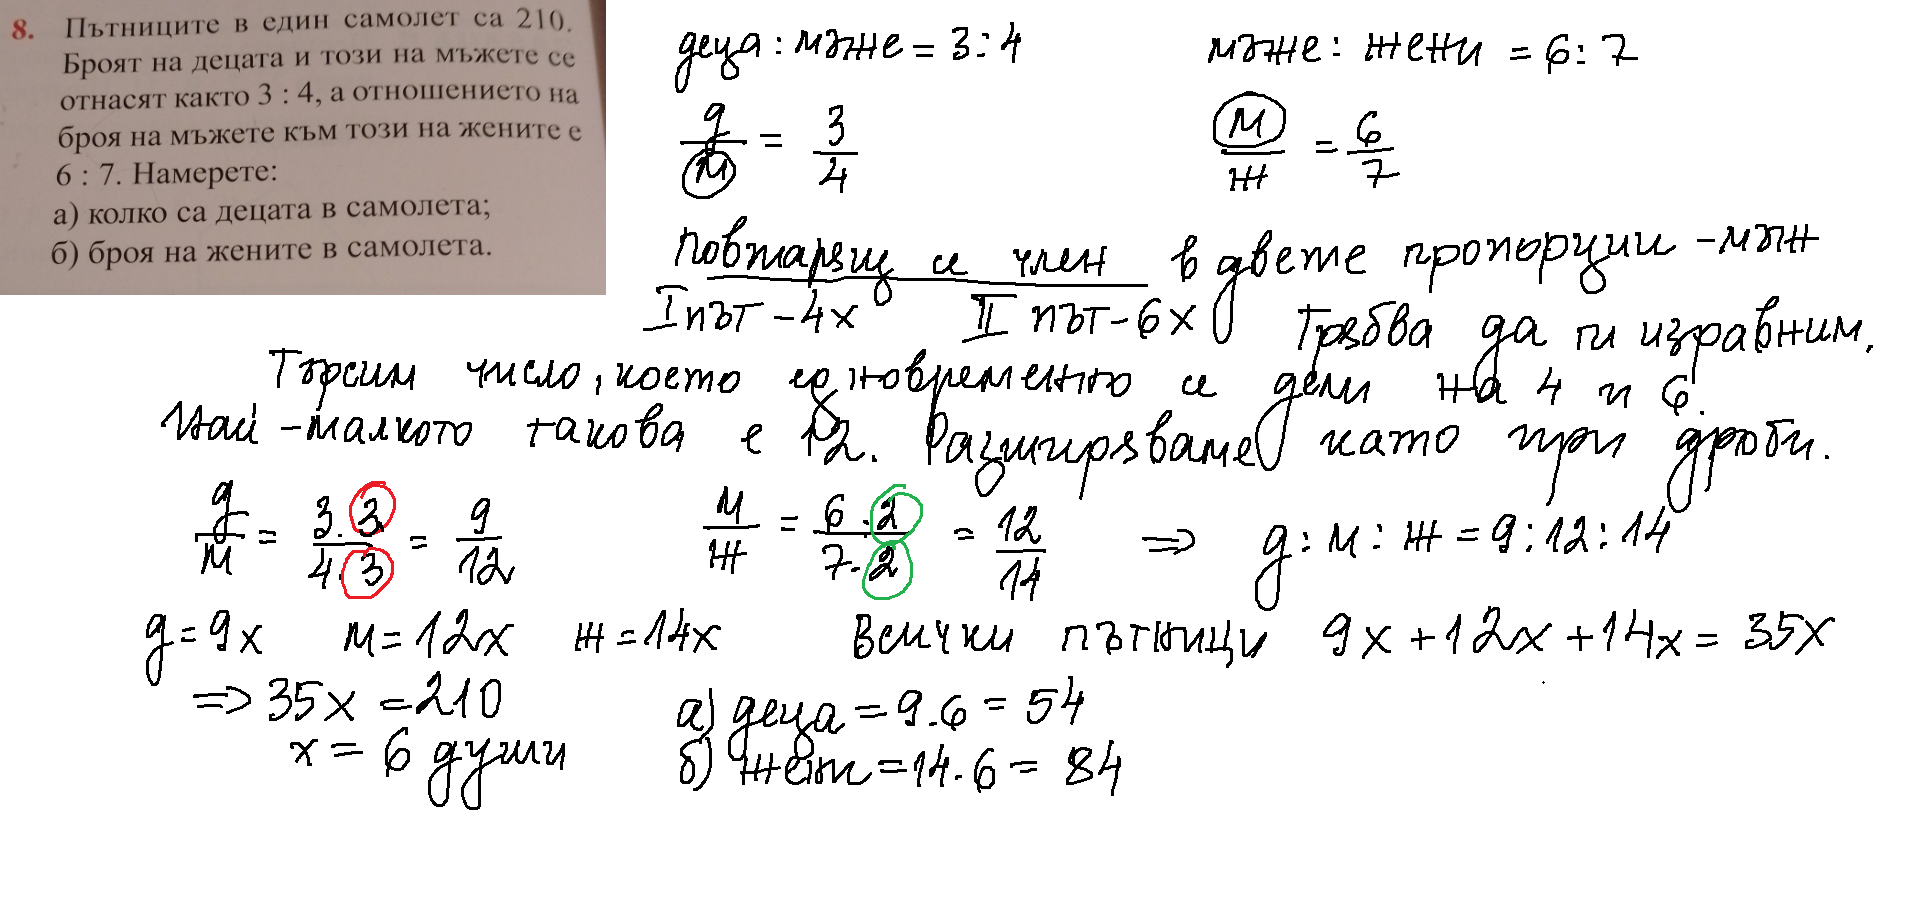 8. Пътниците в един самолет са 210.
Броят на децата и този на мъжете се
отнасят както 3 : 4, а отношението на
броя на мъжете към този на жените е
6 : 7. Намерете:
а) колко са децата в самолета;
б) броя на жените в самолета.
деца : мъже = 3 : 4 мъже : жени = 6 : 7
д/м = 3/4 м/ж = 6/7
Повтарящ се член в двете пропорции - мъж
I път - 4x II път - 6x Трябва да ги изравним.
Търсим число, което едновременно се дели на 4 и 6.
Най-малкото такова е 12. Разширяваме като при дроби.
д/м = 3.3/4.3 = 9/12 м/ж = 6.2/7.2 = 12/14 => д : м : ж = 9 : 12 : 14
д = 9x м = 12x ж = 14x Всички пътници 9x + 12x + 14x = 35x
=> 35x = 210 а) деца = 9.6 = 54
x = 6 души б) жени = 14.6 = 84